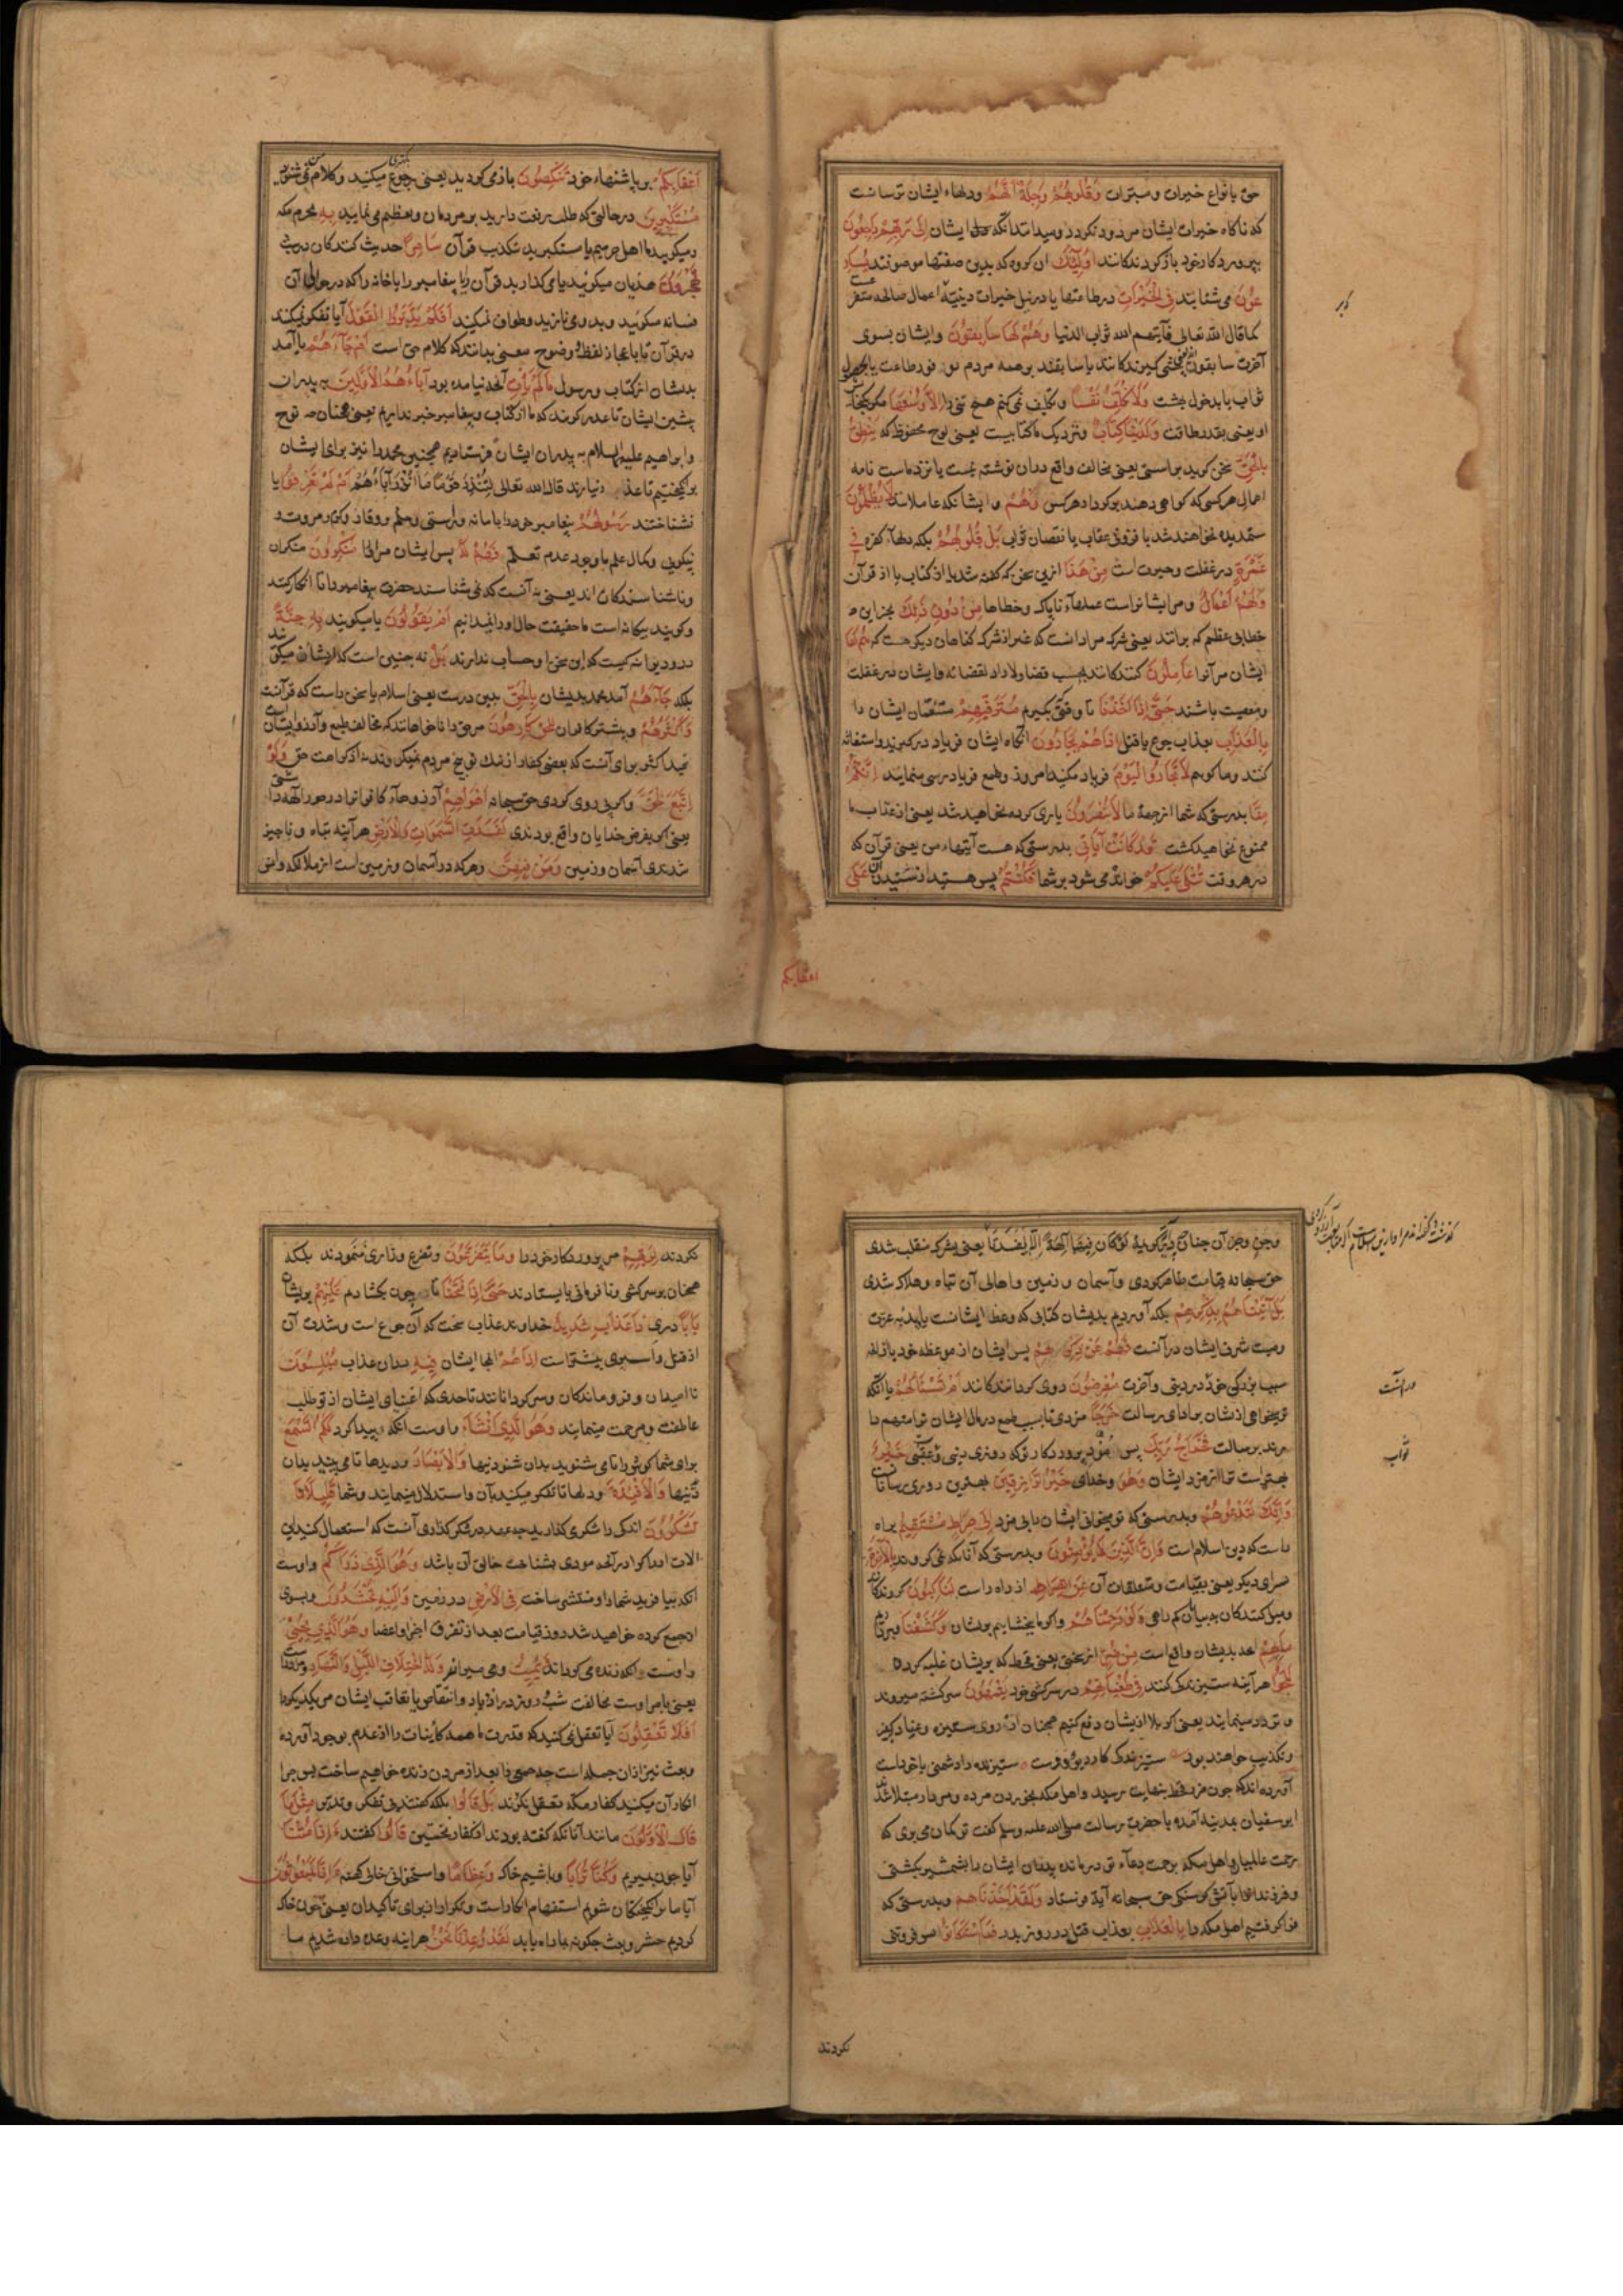 حق بانواع خیرات و مبترات وَقُلُوبُهُمْ وَجِلَةٌ أَنَّهُمْ ودلهاء ایشان ترسانست
که ناکاه خیرات ایشان مردود نکردد ومیدانندانکه ایشان إِلَىٰ رَبِّهِمْ رَاجِعُونَ
بپروردکار خود بازکردندکانند أُولَٰئِكَ ان کروه که بدین صفتها موصوفند يُسَارِ
عُونَ می شتابند فِي الْخَيْرَاتِ درطاعتها یا درنیل خیرات دینیّه اعمال صالحه
کما قال الله تعالی فآتیهم الله ثواب الدنیا وَهُمْ لَهَا سَابِقُونَ وایشان بسوی
آخرت سابقون کیرندکانند یا سابقند بر همه مردم در طاعت یا
ثواب یا بدخول بهشت وَلَا نُكَلِّفُ نَفْسًا وتکلیف نمی کنم هیچ تنی را إِلَّا وُسْعَهَا
او یعنی بقدر طاقت وَلَدَيْنَا كِتَابٌ ونزدیک ماکتابیست یعنی لوح محفوظ که يَنْطِقُ
بِالْحَقِّ سخن کوید براستی یعنی مخالف واقع دران نوشته نیست یا نزد ماست نامه
اعمال هرکسی که کواهی دهند بوکردار هرکس وَهُمْ وایشانکه عاملانند لَا يُظْلَمُونَ
ستمدیده نخواهند شد یا فزونی عقاب یا نقصان ثواب بَلْ قُلُوبُهُمْ بلکه دلهاء کفره فِي
غَمْرَةٍ درغفلت وحیرت است مِنْ هَٰذَا ازین سخن که کفته شد یا از کتاب یا از قرآن
وَلَهُمْ أَعْمَالٌ ومرایشانراست عملهاء ناپاک وخطاها مِنْ دُونِ ذَٰلِكَ بجز این
خطای عظیم که برانند یعنی شرک مراد آنست که غیر از شرک کناهان دیکر هست که هُمْ لَهَا
ایشان مرآنرا عَامِلُونَ کنندکانند بحسب قضا ولاراد لقضائه وایشان درغفلت
ومعصیت باشند حَتَّىٰ إِذَا أَخَذْنَا تا وقتی بکیرم مُتْرَفِيهِمْ متنعّمان ایشان را
بِالْعَذَابِ بعذاب جوع یا قتل إِذَا هُمْ يَجْأَرُونَ آنکاه ایشان فریاد درکیرند واستغاثه
کنند وما کویم لَا تَجْأَرُوا الْيَوْمَ فریاد مکنید امروز وطمع فریادرسی منمایند إِنَّكُمْ
مِنَّا بدرستی که شما ازجهة ما لَا تُنْصَرُونَ یاری کرده نخواهید شد یعنی از عذاب ما
ممنوع نخواهید کشت قَدْ كَانَتْ آيَاتِي بدرستی که هست آیتهاء من یعنی قرآن که
درهر وقت تُتْلَىٰ عَلَيْكُمْ خوانده می شود برشما فَكُنْتُمْ پس هستید از شنیدن آن عَلَىٰ
اعقابکم
أَعْقَابِكُمْ برپاشنهاء خود تَنْكِصُونَ بازمی کردید یعنی رجوع میکنید وکلام
مُسْتَكْبِرِينَ درحالتی که طلب رفعت دارید بر مردمان وتعظیم می نمایید بِهِ بحرم مکه
ومیکویید ما اهل حرمیم یا مستکبرید بتکذیب قرآن سَامِرًا حدیث کنندکان درشب
تَهْجُرُونَ هذیان میکوئید یا می کذارید قرآن را یا پیغامبر را یا خانه را که درحوالی آن
فسانه میکوئید وبدو می نازید وطواف نمیکنید أَفَلَمْ يَدَّبَّرُوا الْقَوْلَ آیا تفکر نمیکنند
درقرآن تا باعجاز لفظ ووضوح معنی بدانند که کلام حق است أَمْ جَاءَهُمْ یا آمد
بدیشان از کتاب ورسول مَا لَمْ يَأْتِ آنچه نیامده بود آبَاءَهُمُ الْأَوَّلِينَ به پدران
پیشین ایشان تا عذر کویند که ما از کتاب وپیغامبر خبر نداریم یعنی همچنان که نوح
وابراهیم علیهم السلام به پدران ایشان فرستادیم همچنین محمد را نیز برای ایشان
برانکیختیم تا عذر نیارند قال الله تعالی لِتُنْذِرَ قَوْمًا مَا أُنْذِرَ آبَاؤُهُمْ أَمْ لَمْ يَعْرِفُوا یا
نشناختند رَسُولَهُمْ پیغامبر خود را با مانه وراستی وحلم ووقار وکرم ومروت و
نیکویی وکمال علم باوجود عدم تعلّم فَهُمْ لَهُ پس ایشان مراورا مُنْكِرُونَ منکران
وناشناسندکان اند یعنی نه آنست که نمی شناسند حضرت پیغامبر را تا انکار کنند
وکویند بیکانه است ما حقیقت حال اورا نمیدانیم أَمْ يَقُولُونَ یا میکویند بِهِ جِنَّةٌ
درو دیوانکیست که این سخن او حساب ندارند بَلْ نه چنین است که ایشان میکویند
بلکه جَاءَهُمْ آمد محمد بدیشان بِالْحَقِّ بدین درست یعنی اسلام یا سخن راست که قرآنست
وَأَكْثَرُهُمْ وبیشتر کافران لِلْحَقِّ كَارِهُونَ مرحق را ناخواهانند که مخالف طبع وآرزو ایشان است
قید اکثر برای آنست که بعضی کفار از ننک توبیخ مردم نمیکرویدند نه از کراهت حق وَلَوِ
اتَّبَعَ الْحَقُّ واکر پی روی کردی حق سبحانه أَهْوَاءَهُمْ آرزوهاء کافرانرا درصور آلهه
یعنی اکر بفرض خدایان واقع بودندی لَفَسَدَتِ السَّمَاوَاتُ وَالْأَرْضُ هرآینه تباه وناچیز
شدندی آسمان وزمین وَمَنْ فِيهِنَّ وهرکه درآسمان وزمین است از ملائکه وانس
وجن وجز آن چنانچ دیکر کوید لَوْ كَانَ فِيهِمَا آلِهَةٌ إِلَّا اللَّهُ لَفَسَدَتَا یعنی شرک منقلب شدی
حق سبحانه قیامت ظاهر کردی وآسمان وزمین واهالی آن تباه وهلاک شدی
بَلْ أَتَيْنَاهُمْ بِذِكْرِهِمْ بلکه آوردیم بدیشان کتابی که وعظ ایشانست یا پند به عزت
وصیت شرف ایشان درآنست فَهُمْ عَنْ ذِكْرِهِمْ پس ایشان از موعظه خود یا از انچه
سبب بزرکی خود دردنیی وآخرت مُعْرِضُونَ روی کردانندکانند أَمْ تَسْأَلُهُمْ یا آنکه
تو میخواهی ازیشان برادای رسالت خَرْجًا مزدی تا بسبب طمع درمال ایشان ترا متهم دا
رند برسالت فَخَرَاجُ رَبِّكَ پس مزد پروردکار تو که روزی دنیی وعقبی خَيْرٌ
بهتر است ترا از مزد ایشان وَهُوَ وخدای خَيْرُ الرَّازِقِينَ بهترین روزی رسانانست
وَإِنَّكَ لَتَدْعُوهُمْ وبدرستی که تو میخوانی ایشان را بی مزد إِلَىٰ صِرَاطٍ مُسْتَقِيمٍ براه
راست که دین اسلام است وَإِنَّ الَّذِينَ لَا يُؤْمِنُونَ وبدرستی که آنانکه نمی کروند بِالْآخِرَةِ
سرای دیکر یعنی بقیامت ومتعلقات آن عَنِ الصِّرَاطِ از راه راست لَنَاكِبُونَ
ومیل کنندکان به بیابان کم راهی وَلَوْ رَحِمْنَاهُمْ واکر ما ببخشاییم برایشان وَكَشَفْنَا
مَا بِهِمْ انچه بدیشان واقع است مِنْ ضُرٍّ از سختی یعنی قحط که برایشان غلبه کرده
لَلَجُّوا هرآینه ستیزندکی کنند فِي طُغْيَانِهِمْ درسرکشی خود يَعْمَهُونَ سرکشته میروند
وتردد مینمایند یعنی اکر بلا ازیشان دفع کنیم همچنان از روی ستیزه وعناد
وتکذیب خواهند بود ستیزندکی کار دیو ودوست ستیزنده را دشمنی با خود است
آورده اند که چون مرض قحط بنهایت رسید واهل مکه بخوردن مرده ومردار مبتلا شدند
ابوسفیان بمدینه آمده با حضرت رسالت صلی الله علیه وسلم کفت تو کمان می بری که
رحمت عالمیان واهل مکه برحمت دعاء تو درمانده پدران ایشان را بشمشیر بکشتی
وفرزندانرا بآتش کرسنکی حق سبحانه آیة فرستاد وَلَقَدْ أَخَذْنَاهُمْ وبدرستی که
فراکرفتیم اهل مکه را بِالْعَذَابِ بعذاب قتل در روز بدر فَمَا اسْتَكَانُوا پس فروتنی
درآنست
ثواب
نکردند
نکردند لِرَبِّهِمْ مر پروردکار خود را وَمَا يَتَضَرَّعُونَ وتضرع وزاری ننمودند بلکه
همچنان برسرکشی ونافرمانی بایستادند حَتَّىٰ إِذَا فَتَحْنَا تا چون بکشادم عَلَيْهِمْ برایشان
بَابًا دری ذَا عَذَابٍ شَدِيدٍ خداوند عذاب سخت که آن جوع است وشدت آن
از قتل واسیری بیشتر است إِذَا هُمْ آنجا ایشان فِيهِ دران عذاب مُبْلِسُونَ
ناامیدان وفروماندکان وسرکردانانند تا حدی که اغنیای ایشان از تو طلب
عاطفت ومرحمت مینمایند وَهُوَ الَّذِي أَنْشَأَ واوست آنکه پیدا کرد لَكُمُ السَّمْعَ
برای شما کوش را تا می شنوید بدان شنودنیها وَالْأَبْصَارَ ودیدها تا می بینید بدان
دیدنیها وَالْأَفْئِدَةَ ودلها تا تفکر میکنید بآن واستدلال مینمایند وشما قَلِيلًا مَا
تَشْكُرُونَ اندکی را شکری کذارید چه عمده درشکر کذاری آنست که استعمال کنید این
آلات ادراک را درآنچه مودی بشناخت خالق آن باشد وَهُوَ الَّذِي ذَرَأَكُمْ واوست
آنکه بیافرید شما را ومنتشر ساخت فِي الْأَرْضِ درزمین وَإِلَيْهِ تُحْشَرُونَ وبسوی
اوجمع کرده خواهید شد روز قیامت بعد از تفرق اجزا واعضا وَهُوَ الَّذِي يُحْيِي
واوست آنکه زنده می کرداند وَيُمِيتُ ومی میراند وَلَهُ اخْتِلَافُ اللَّيْلِ وَالنَّهَارِ
یعنی بامر اوست مخالفت شب وروز درازدیاد وانتقاص یا تعاقب ایشان مریکدیکررا
أَفَلَا تَعْقِلُونَ آیا تعقل نمی کنید که قدرت ما همه کاینات را از عدم بوجود آورده
وبعث نیز ازان جمله است چه همه را بعد از مردن زنده خواهیم ساخت پس چرا
انکار آن میکنید کفار مکه تعقل نکردند بَلْ قَالُوا بلکه کفتند بی تفکر وتدبر مِثْلَ مَا
قَالَ الْأَوَّلُونَ مانند آنانکه کفته بودند از کفار نخستین قَالُوا کفتند أَإِذَا مِتْنَا
آیا چون بمیریم وَكُنَّا تُرَابًا وباشیم خاک وَعِظَامًا واستخوانی خالی کهنه أَإِنَّا لَمَبْعُوثُونَ
آیا ما برانکیختکان شویم استفهام انکار است وتکرار آن برای تاکید آن یعنی چون خاک
کردیم حشر وبعث چکونه بما راه یابد لَقَدْ وُعِدْنَا نَحْنُ هرآینه وعده داده شدیم ما